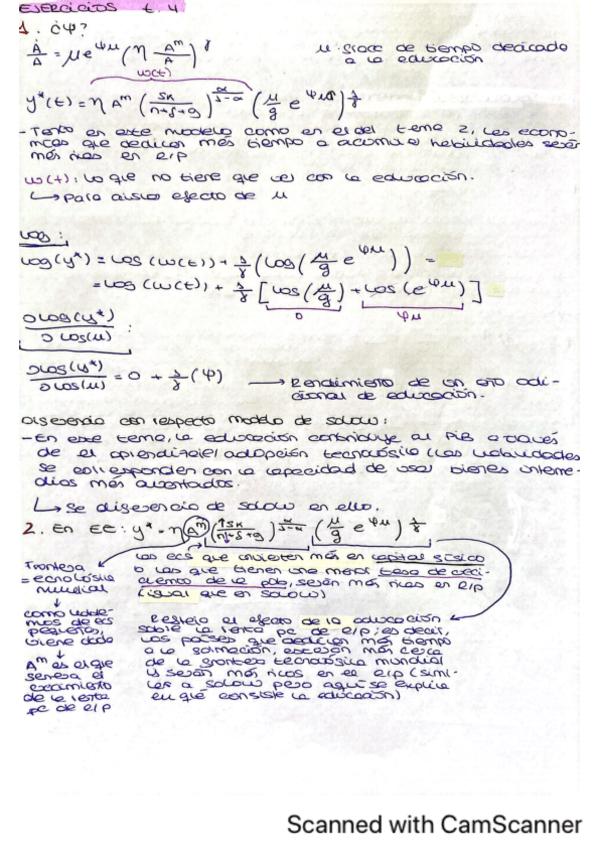 EJERCICIOS t. 4
1. ¿φ?
Ȧ/A = μe^φμ (η A^m/A)^γ    μ: frac de tiempo dedicado
a la educación
w(t)
y*(t) = η A^m (sk/n+δ+g)^α/1-α (μ/g e^φμ)^1/γ
- Tanto en este modelo como en el del tema 2, las econo-
mías que dedican más tiempo a acumular habilidades serán
más ricas en e l/p
w(t): lo que no tiene que ver con la educación.
↳ Para aislar efecto de μ
Log:
log(y*) = log(w(t)) + 1/γ (log(μ/g e^φμ)) =
= log(w(t)) + 1/γ [log(μ/g) + log(e^φμ)]
0    φμ
∂log(y*)/∂log(μ) :
∂log(y*)/∂log(μ) = 0 + 1/γ (φ) → Rendimiento de un año adi-
cional de educación.
Diferencia con respecto modelo de Solow:
- En este tema, la educación contribuye al PIB a través
de el aprendizaje/adopción tecnológica (las habilidades
se corresponden con la capacidad de usar bienes interme-
dios más avanzados.
↳ Se diferencia de Solow en ello.
2. En EE: y* = η A^m (↑sk/n+δ+g)^α/1-α (μ/g e^φμ)^1/γ
Las ecs que invierten más en capital físico
o las que tienen una menor tasa de creci-
ciemento de la pob, serán más ricas en e l/p
(igual que en Solow)
Frontera
tecnológica
mundial
↓
como habla-
mos de ecs
pequeñas,
viene dado
↓
A^m es el que
genera el
crecimiento
de la renta
pc de e l/p
Refleja el efecto de la educación
sobre la renta pc de e l/p; es decir,
los países que dedican más tiempo
a la formación, estarán más cerca
de la frontera tecnológica mundial
y serán más ricos en el e l/p (simi-
lar a Solow pero aquí se explica
en qué consiste la educación)
Scanned with CamScanner